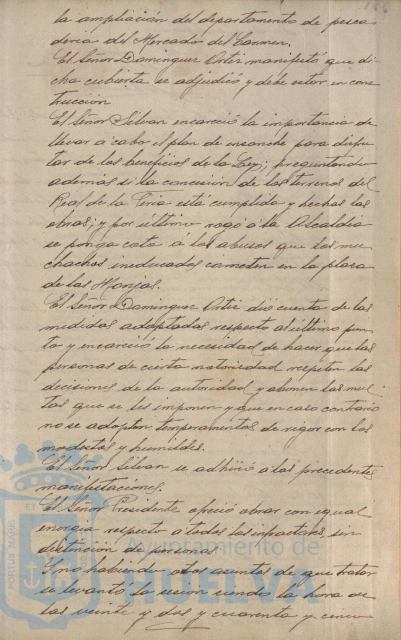 186
la ampliación del departamento de pesca
deria del Mercado del Carmen.
El Señor Dominguez Ortiz manifestó que di
cha cubierta se adjudicó y debe estar en cons
trucción
El Señor Silvan encareció la importancia de
llevar a cabo el plan de ensanche para disfru
tar de los beneficios de la Ley; preguntando
además si la concesión de los terrenos del
Real de la Feria está cumplida y hechas las
obras; y por último rogó á la Alcaldia
se ponga coto á los abusos que los mu
chachos ineducados cometen en la plaza
de las Monjas.
El Señor Dominguez Ortiz dió cuenta de las
medidas adoptadas respecto al último pun
to y encareció la necesidad de hacer que las
personas de cierta notoriedad respeten las
decisiones de la autoridad y abonen las mul
tas que se les imponen y que en caso contrario
no se adopten temperamentos de rigor con los
modestos y humildes.
El Señor Silvan se adhirió á las precedentes
manifestaciones.
El Señor Presidente ofreció obrar con igual
energia respecto a todos los infractores sin
distinción de personas
Y no habiendo otros asuntos de que tratar
se levantó la sesión siendo la hora de
las veinte y dos y cuarenta y cinco
PORTUS MARIS ET
Ayuntamiento de
HUELVA